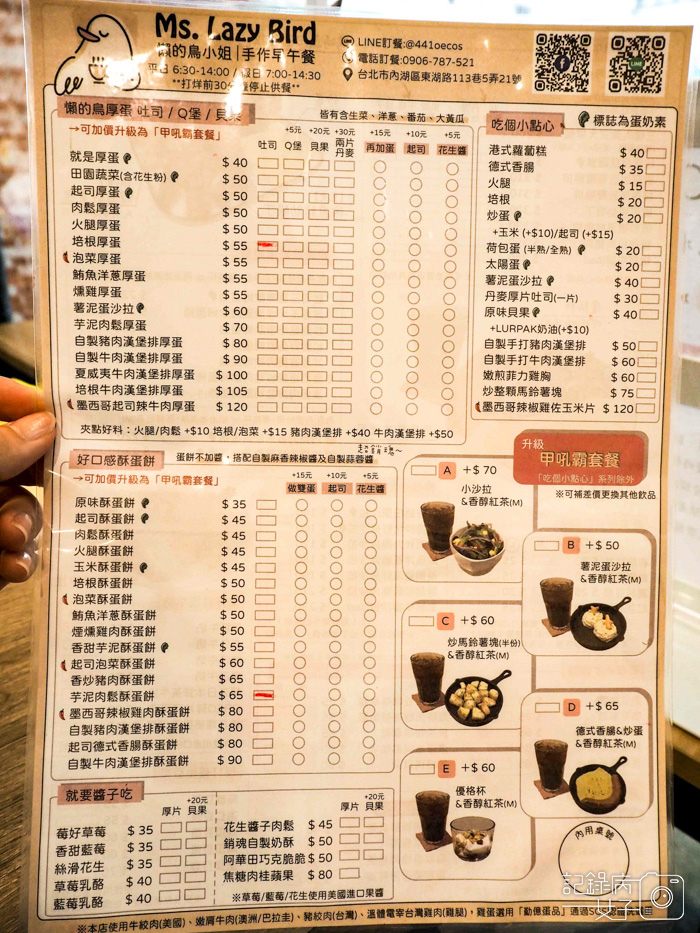 Ms. Lazy Bird
懶的鳥小姐|手作早午餐
平日 6:30-14:00 / 假日 7:00-14:30
**打烊前30分鐘停止供餐**
LINE訂餐:@441oecos
電話訂餐:0906-787-521
台北市內湖區東湖路113巷5弄21號
LINE
懶的鳥厚蛋 吐司 / Q堡 / 貝果
皆有含生菜、洋蔥、番茄、大黃瓜
→可加價升級為「甲吼霸套餐」
+5元 +20元 +30元 +15元 +10元 +5元
吐司 Q堡 貝果 兩片丹麥 再加蛋 起司 花生醬
就是厚蛋 $ 40
田園蔬菜(含花生粉) $ 50
起司厚蛋 $ 50
肉鬆厚蛋 $ 50
火腿厚蛋 $ 50
培根厚蛋 $ 55
泡菜厚蛋 $ 55
鮪魚洋蔥厚蛋 $ 55
燻雞厚蛋 $ 55
薯泥蛋沙拉 $ 60
芋泥肉鬆厚蛋 $ 70
自製豬肉漢堡排厚蛋 $ 80
自製牛肉漢堡排厚蛋 $ 90
夏威夷牛肉漢堡排厚蛋 $ 100
培根牛肉漢堡排厚蛋 $ 105
墨西哥起司辣牛肉厚蛋 $ 120
夾點好料：火腿/肉鬆 +$10 培根/泡菜 +$15 豬肉漢堡排 +$40 牛肉漢堡排 +$50
吃個小點心
標誌為蛋奶素
港式蘿蔔糕 $ 40
德式香腸 $ 35
火腿 $ 15
培根 $ 20
炒蛋 $ 20
+玉米 (+$10)/起司 (+$15)
荷包蛋 (半熟/全熟) $ 20
太陽蛋 $ 20
薯泥蛋沙拉 $ 40
丹麥厚片吐司(一片) $ 30
原味貝果 $ 40
+LURPAK奶油(+$10)
自製手打豬肉漢堡排 $ 50
自製手打牛肉漢堡排 $ 60
嫩煎菲力雞胸 $ 60
炒整顆馬鈴薯塊 $ 75
墨西哥辣椒雞佐玉米片 $ 120
好口感酥蛋餅
蛋餅不加醬，搭配自製麻香辣椒醬及自製蒜蓉醬
→可加價升級為「甲吼霸套餐」
+15元 +10元 +5元
做雙蛋 起司 花生醬
原味酥蛋餅 $ 35
起司酥蛋餅 $ 45
肉鬆酥蛋餅 $ 45
火腿酥蛋餅 $ 45
玉米酥蛋餅 $ 45
培根酥蛋餅 $ 50
泡菜酥蛋餅 $ 50
鮪魚洋蔥酥蛋餅 $ 50
煙燻雞肉酥蛋餅 $ 50
香甜芋泥酥蛋餅 $ 55
起司泡菜酥蛋餅 $ 60
香炒豬肉酥蛋餅 $ 65
芋泥肉鬆酥蛋餅 $ 65
墨西哥辣椒雞肉酥蛋餅 $ 80
自製豬肉漢堡排酥蛋餅 $ 80
起司德式香腸酥蛋餅 $ 80
自製牛肉漢堡排酥蛋餅 $ 90
升級
甲吼霸套餐
「吃個小點心」系列除外
※可補差價更換其他飲品
A +$ 70
小沙拉
&香醇紅茶(M)
B +$ 50
薯泥蛋沙拉
&香醇紅茶(M)
C +$ 60
炒馬鈴薯塊(半份)
&香醇紅茶(M)
D +$ 65
德式香腸&炒蛋
&香醇紅茶(M)
E +$ 60
優格杯
&香醇紅茶(M)
內用桌號
就要醬子吃
厚片 +20元 貝果
莓好草莓 $ 35
香甜藍莓 $ 35
絲滑花生 $ 35
草莓乳酪 $ 40
藍莓乳酪 $ 40
厚片 +20元 貝果
花生醬子肉鬆 $ 45
銷魂自製奶酥 $ 50
阿華田巧克脆脆 $ 50
焦糖肉桂蘋果 $ 80
※草莓/藍莓/花生使用美國進口果醬
※本店使用牛絞肉(美國)、嫩肩牛肉(澳洲/巴拉圭)、豬絞肉(台灣)、溫體電宰台灣雞肉(雞腿)，雞蛋選用「動億蛋品」通過
記錄病女子